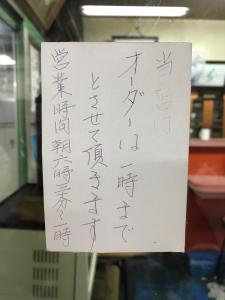 当店は
オーダーは一時まで
とさせて頂きます
営業時間 朝六時三分〜一時